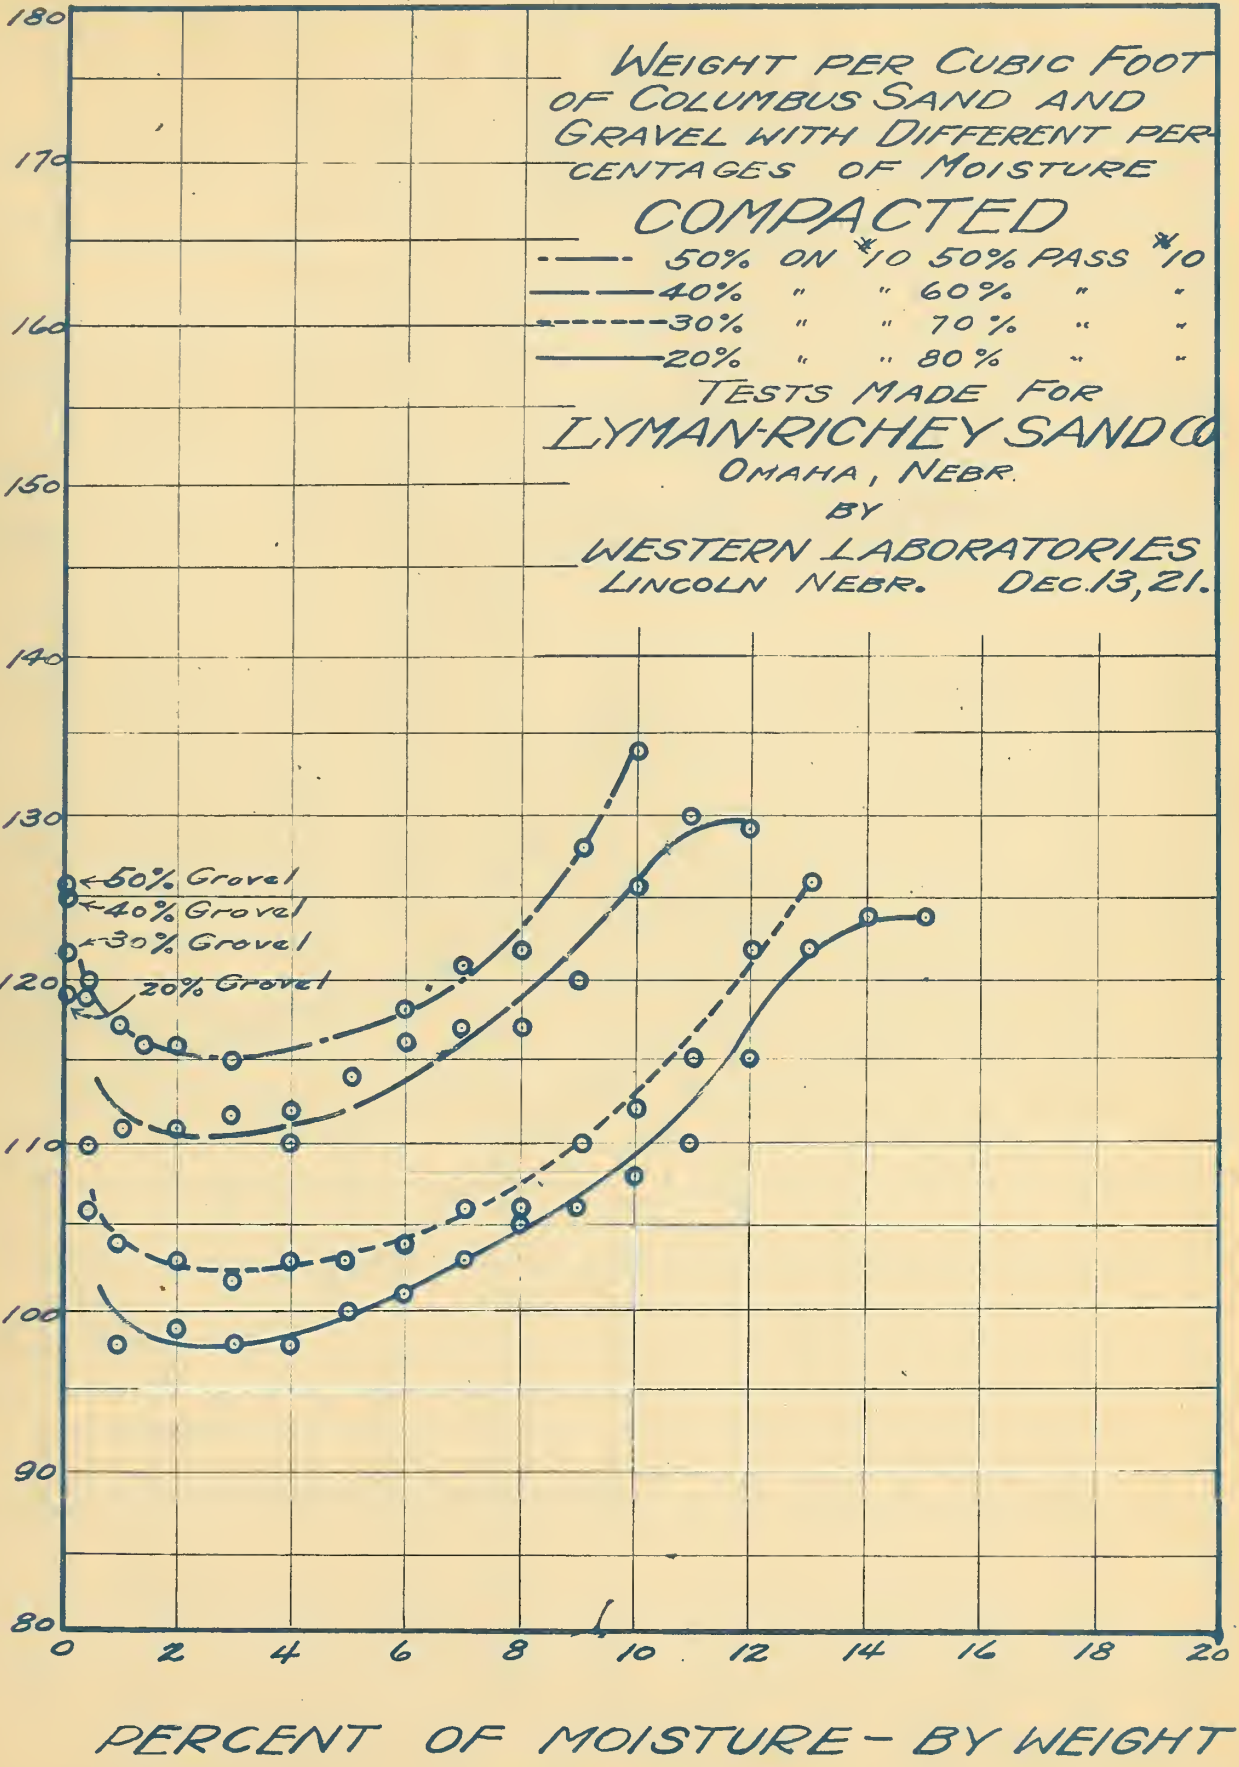 180
170
160
150
140
130
120
110
100
90
80
WEIGHT PER CUBIC FOOT
OF COLUMBUS SAND AND
GRAVEL WITH DIFFERENT PER-
CENTAGES OF MOISTURE
COMPACTED
50% ON #10 50% PASS #10
40% " " 60% " "
30% " " 70% " "
20% " " 80% " "
TESTS MADE FOR
LYMAN-RICHEY SAND CO
OMAHA, NEBR.
BY
WESTERN LABORATORIES
LINCOLN NEBR. DEC.13,21.
50% Gravel
40% Gravel
30% Gravel
20% Gravel
0 2 4 6 8 10 12 14 16 18 20
PERCENT OF MOISTURE - BY WEIGHT